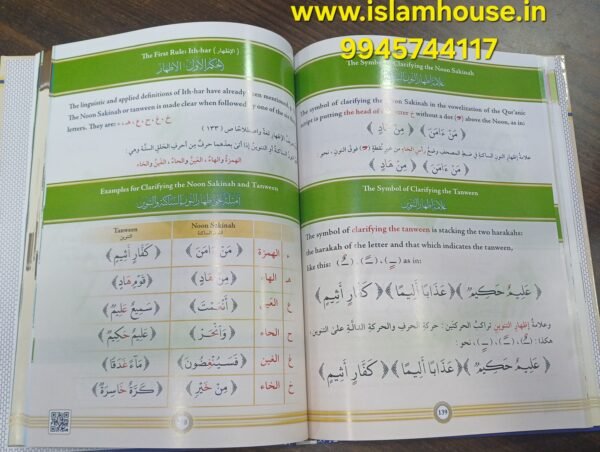 www.islamhouse.in
9945744117
The First Rule: Ith-har (الإظهار)
الحكم الأول: الإظهار
The linguistic and applied definitions of Ith-har have already been mentioned.
The Noon Sakinah or tanween is made clear when followed by one of the six
letters. They are:
الهمزة والهاء، العين والحاء، الغين والخاء
Examples for Clarifying the Noon Sakinah and Tanween
أمثلة على إظهار النون الساكنة والتنوين
Tanween
التنوين
Noon Sakinah
النون الساكنة
ء الهمزة ﴿مَنْ ءَامَنَ﴾ ﴿كَفَّارٍ أَثِيمٍ﴾
هـ الهاء ﴿مِنْ هَادٍ﴾ ﴿قَوْمٍ هَادٍ﴾
ع العين ﴿أَنْعَمْتَ﴾ ﴿سَمِيعٌ عَلِيمٌ﴾
ح الحاء ﴿وَانْحَرْ﴾ ﴿عَلِيمٌ حَكِيمٌ﴾
غ الغين ﴿فَسَيُنْغِضُونَ﴾ ﴿مَاءً غَدَقًا﴾
خ الخاء ﴿مِنْ خَيْرٍ﴾ ﴿كَرَّةٌ خَاسِرَةٌ﴾
The Symbol of Clarifying the Noon Sakinah
علامة إظهار النون الساكنة
The symbol of clarifying the Noon Sakinah in the vowelization of the Qur'anic
script is putting the head of without a dot above the Noon, as in:
﴿مَنْ ءَامَنَ﴾ ﴿مِنْ هَادٍ﴾
علامة إظهار النون الساكنة في ضبط المصحف وضع رأس الخاء من غير نقطة فوق النون، نحو:
﴿مَنْ ءَامَنَ﴾ ﴿مِنْ هَادٍ﴾
The Symbol of Clarifying the Tanween
علامة إظهار التنوين
The symbol of clarifying the tanween is stacking the two harakahs:
the harakah of the letter and that which indicates the tanween,
like this: as in:
﴿عَلِيمٌ حَكِيمٌ﴾ ﴿عَذَابًا أَلِيمًا﴾ ﴿كَفَّارٍ أَثِيمٍ﴾
وعلامة إظهار التنوين تراكب الحركتين: حركة الحرف والحركة الدالة على التنوين،
هكذا: نحو:
﴿عَلِيمٌ حَكِيمٌ﴾ ﴿عَذَابًا أَلِيمًا﴾ ﴿كَفَّارٍ أَثِيمٍ﴾
139